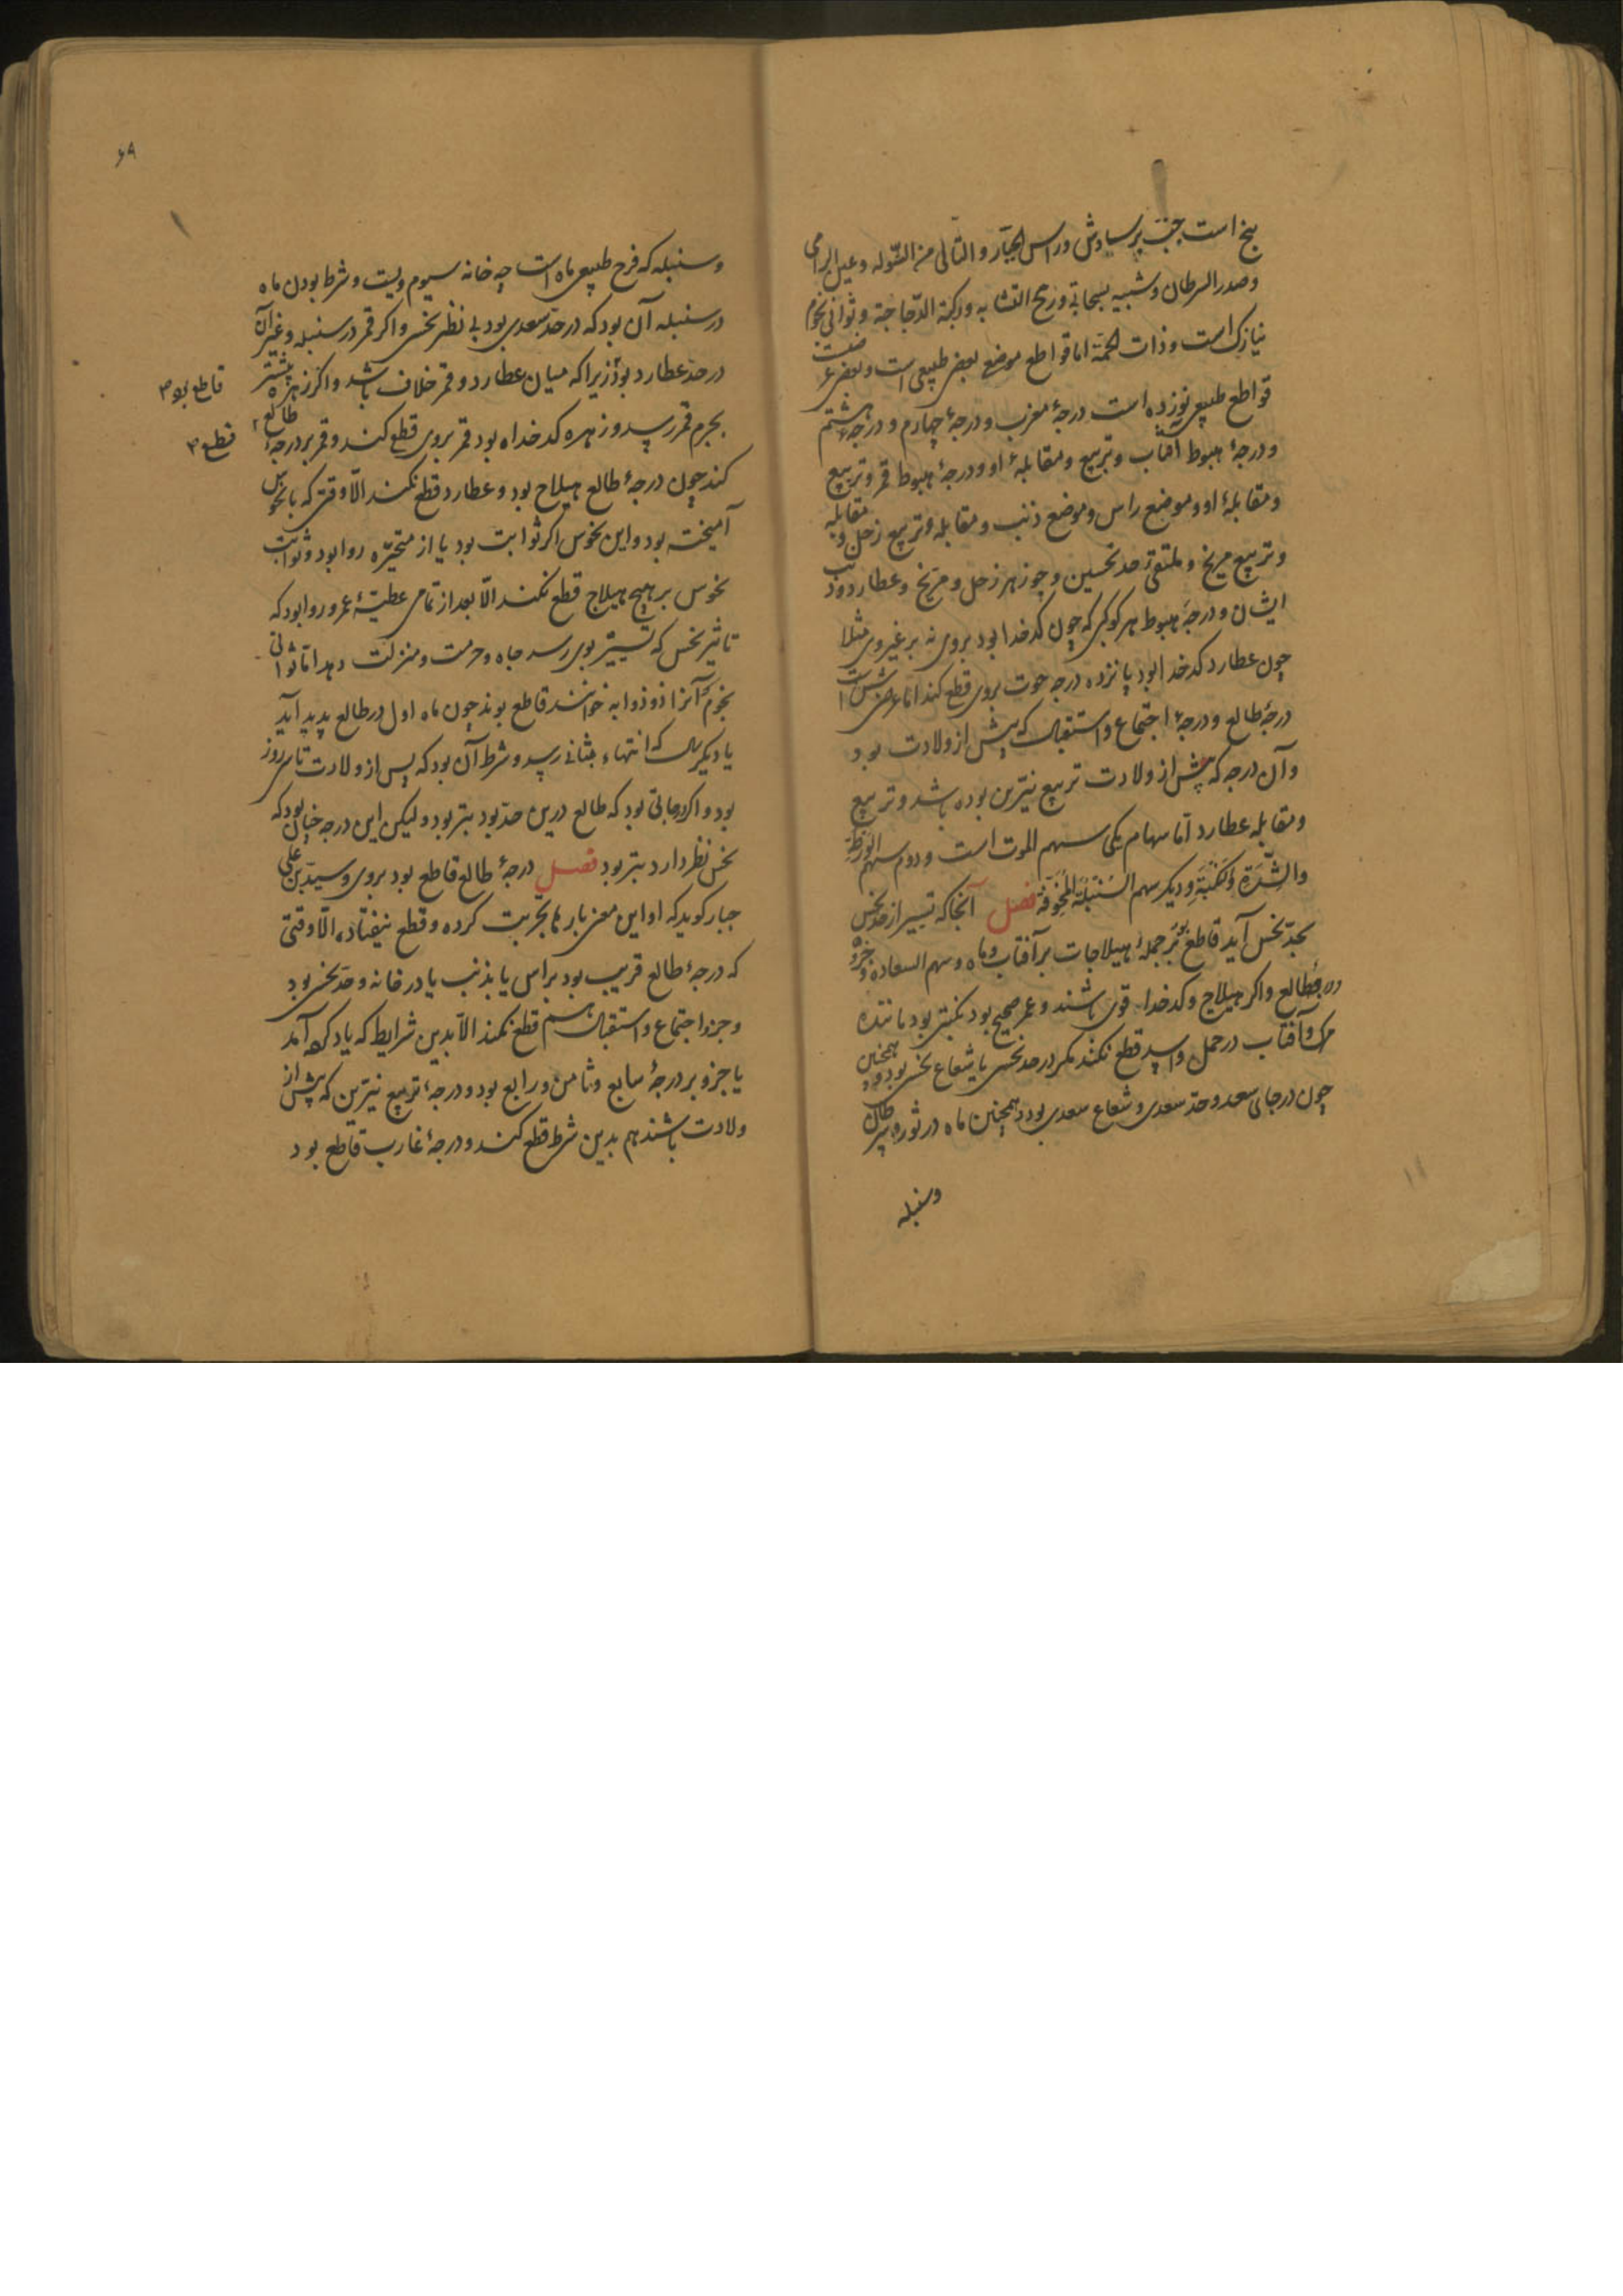 پنج است جنب برساوش وراس الجبار والتالی من الشوله وعین الرامی
وصدر السرطان وشبیه بسحابی ورمح التشابه ورکبة الدجاجة وثوانی نجوم
نیازک است وذات الجمة اما قواطع موضع بعضی طبیعی است وبعضی
قواطع طبیعی نوزده است درجهٔ مغرب ودرجهٔ چهارم ودرجهٔ هشتم
ودرجهٔ هبوط آفتاب وتربیع ومقابلهٔ او ودرجهٔ هبوط قمر وتربیع
ومقابلهٔ او وموضع راس وموضع ذنب ومقابله وتربیع زحل ومقابله
وتربیع مریخ وملتقی حد نحسین وجوزهر زحل ومریخ وعطارد وذنب
ایشان ودرجهٔ هبوط هر کوکبی که چون کدخدا بود بروی نه بر غیر وی مثلا
چون عطارد کدخدا بود پانزده درجه حوت بروی قطع کند اما عرضی شش است
درجهٔ طالع ودرجهٔ اجتماع واستقبال که پیش از ولادت بود
وآن درجه که پیش از ولادت تربیع نیرین بوده باشد وتربیع
ومقابله عطارد اما سهام یکی سهم الموت است ودوم سهم الورطة
والشدة والنکبة ودیکر سهم السنبلة المخوفة فصل آنجا که تسییر از حد نحس
بحد نحس آید قاطع بود بر جملهٔ هیلاجات بر آفتاب وماه وسهم السعاده وجزو
ودرجهٔ طالع واکر هیلاج وکدخدا قوی باشند وعمر صحیح بود نکبتی بود مانندهٔ
مرک وآفتاب در حمل واسد قطع نکند مکر در حد نحس یا شعاع نحس بود وهمچنین
چون در جای سعد وحد سعدی وشعاع سعدی بود وهمچنین ماه در ثور وسرطان
وسنبله
۶۸
وسنبله که فرح طبیعی ماه است چه خانه سیوم ویست وشرط بودن ماه
در سنبله آن بود که در حد سعدی بود بی نظر نحس واکر قمر در سنبله وغیر آن
در حد عطارد بود زیرا که میان عطارد وقمر خلاف باشد واکر زهره پیشتر
قاطع بود
بجرم قمر رسد وزهره کدخداه بود قمر بروی قطع کند وقمر بر درجهٔ طالع
قطع
کند چون درجهٔ طالع هیلاج بود وعطارد قطع نکند الا وقتی که با نحوس
آمیخته بود واین نحوس اکر ثوابت بود یا از متحیره روا بود وثوابت
نحوس بر هیچ هیلاج قطع نکند الا بعد از تمامی عطیهٔ عمر وروا بود که
تاثیر نحس که تسییر بوی رسد جاه وحرمت ومنزلت دهد اما ثوانی
نجوم آنرا ذو ذوابه خوانند قاطع بوند چون ماه اول در طالع پدید آید
یا دیکر سال که انتهاء بثانی رسد وشرط آن بود که پس از ولادت تا سی روز
بود واکر درجاتی بود که طالع درین حد بود بتر بود ولیکن این درجه چنان بود که
نحس نظر دارد بتر بود فصل درجهٔ طالع قاطع بود بروی وسید بن علی
جبار کوید که او این معنی بارها تجربت کرده وقطع نیفتاده الا وقتی
که درجهٔ طالع قریب بود براس یا بذنب یا در خانه وحد نحس بود
وجزو اجتماع واستقبال هم قطع نکند الا بدین شرایط که یاد کرده آمد
یا جزو بر درجهٔ سابع وثامن ورابع بود ودرجهٔ تربیع نیرین که پیش از
ولادت باشند هم بدین شرط قطع کند ودرجهٔ غارب قاطع بود